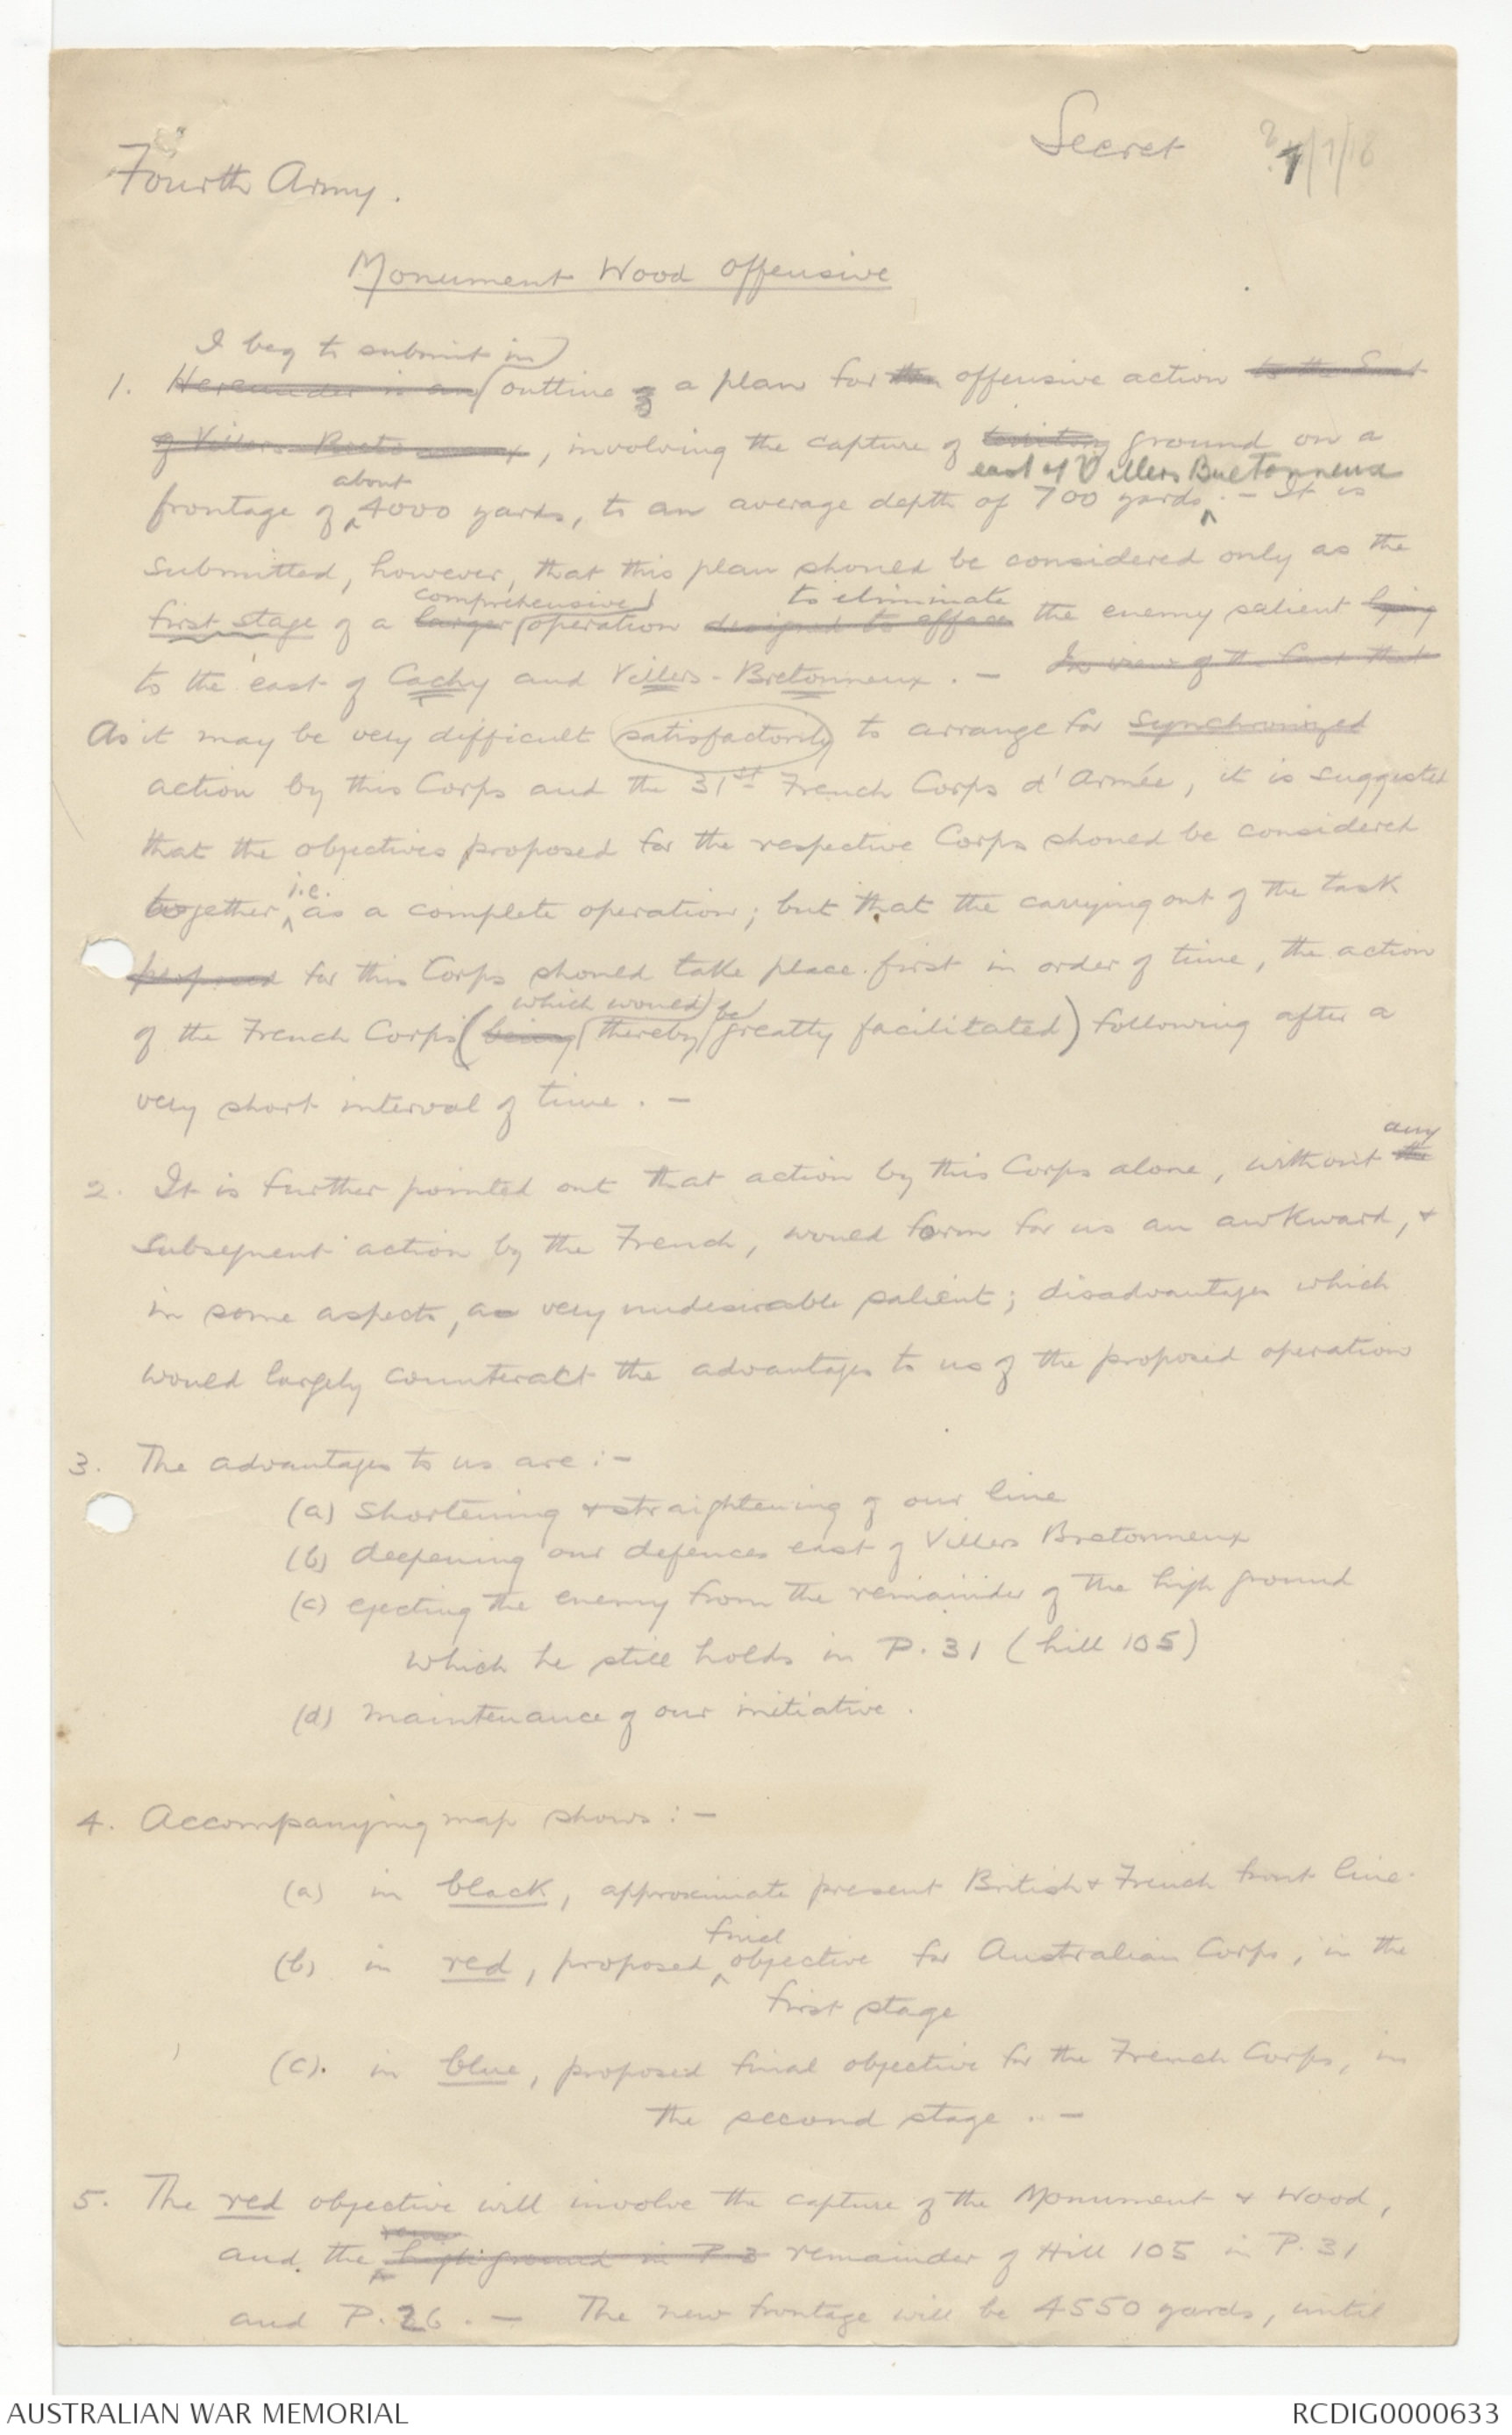 Secret
7/7/18
Fourth Army.
Monument Wood Offensive
I beg to submit in
1. Hereunder is an outline of a plan for the offensive action to the East
of Villers Bretonneux, involving the capture of territory ground on a
east of Villers Bretonneux
about
frontage of 4000 yards, to an average depth of 700 yards. - It is
submitted, however, that this plan should be considered only as the
comprehensive to eliminate
first stage of a larger operation designed to efface the enemy salient lying
to the east of Cachy and Villers-Bretonneux. - In view of the fact that
As it may be very difficult satisfactorily to arrange for synchronized
action by this Corps and the 31st French Corps d'Armée, it is suggested
that the objectives proposed for the respective Corps should be considered
i.e.
together, as a complete operation; but that the carrying out of the task
proposed for this Corps should take place first in order of time, the action
which would be
of the French Corps (being thereby greatly facilitated) following after a
very short interval of time. -
any
2. It is further pointed out that action by this Corps alone, without the
subsequent action by the French, would form for us an awkward, &
in some aspects, a very undesirable salient; disadvantages which
would largely counteract the advantages to us of the proposed operation
3. The advantages to us are :-
(a) Shortening & straightening of our line
(b) deepening our defences east of Villers Bretonneux
(c) ejecting the enemy from the remainder of the high ground
which he still holds in P.31 (hill 105)
(d) maintenance of our initiative.
4. Accompanying map shows :-
(a) in black, approximate present British & French front line.
final
(b) in red, proposed objective for Australian Corps, in the
first stage
(c). in blue, proposed final objective for the French Corps, in
the second stage. -
5. The red objective will involve the capture of the Monument & Wood,
and the high ground in P.3 remainder of Hill 105 in P.31
and P.26. - The new frontage will be 4550 yards, until
AUSTRALIAN WAR MEMORIAL
RCDIG0000633